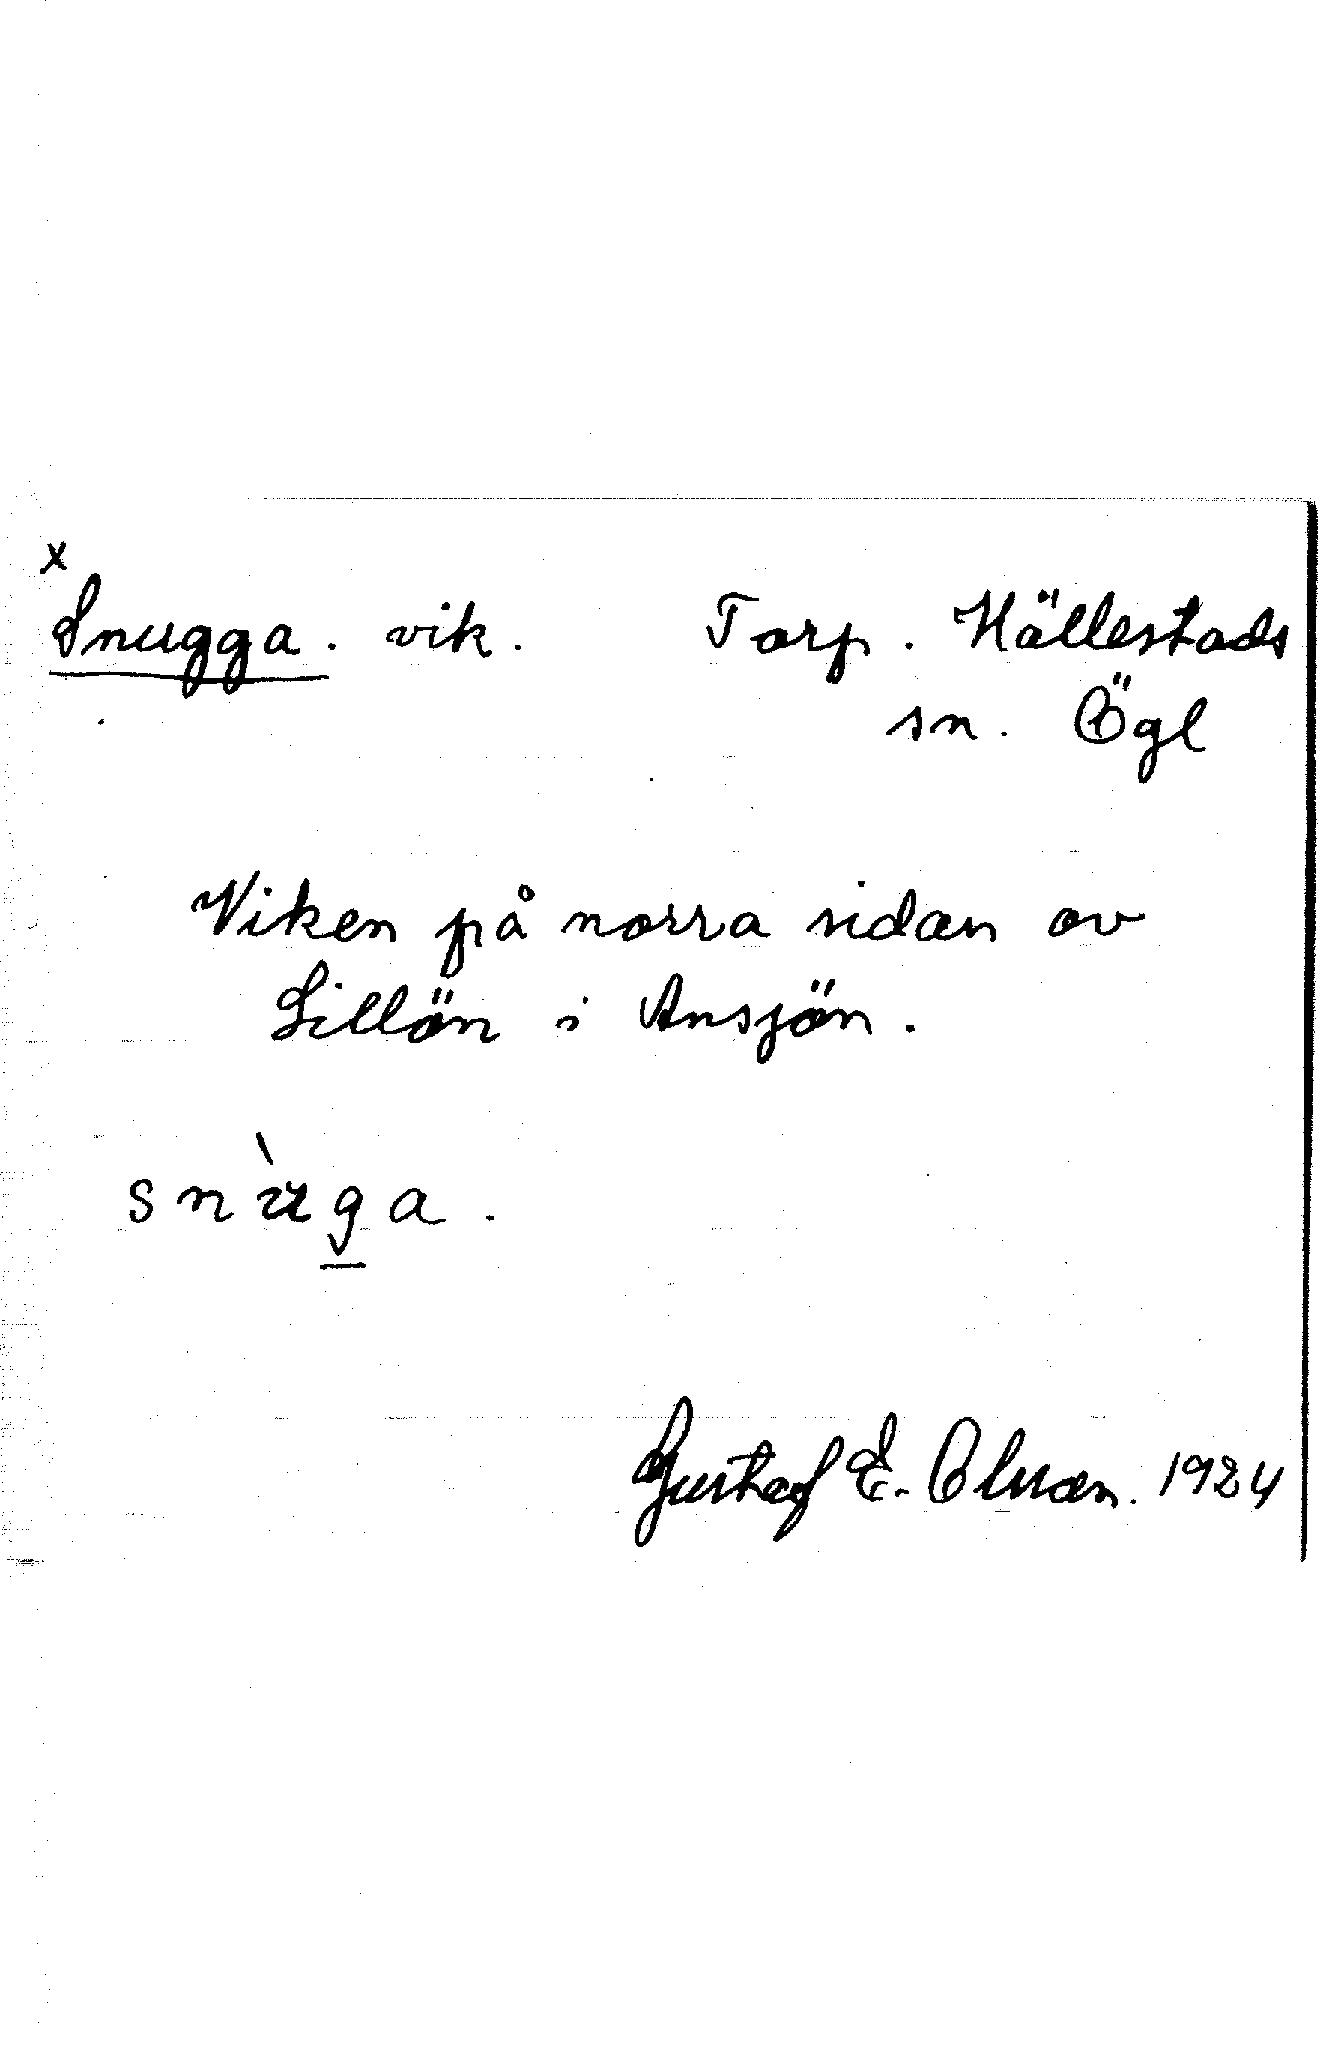 x
Snugga. vik. Torp. Hällestads
sn. Ögl
Viken på norra sidan av
Lillön i Ansjön.
snùga.
Gustaf E. Olsson. 1924